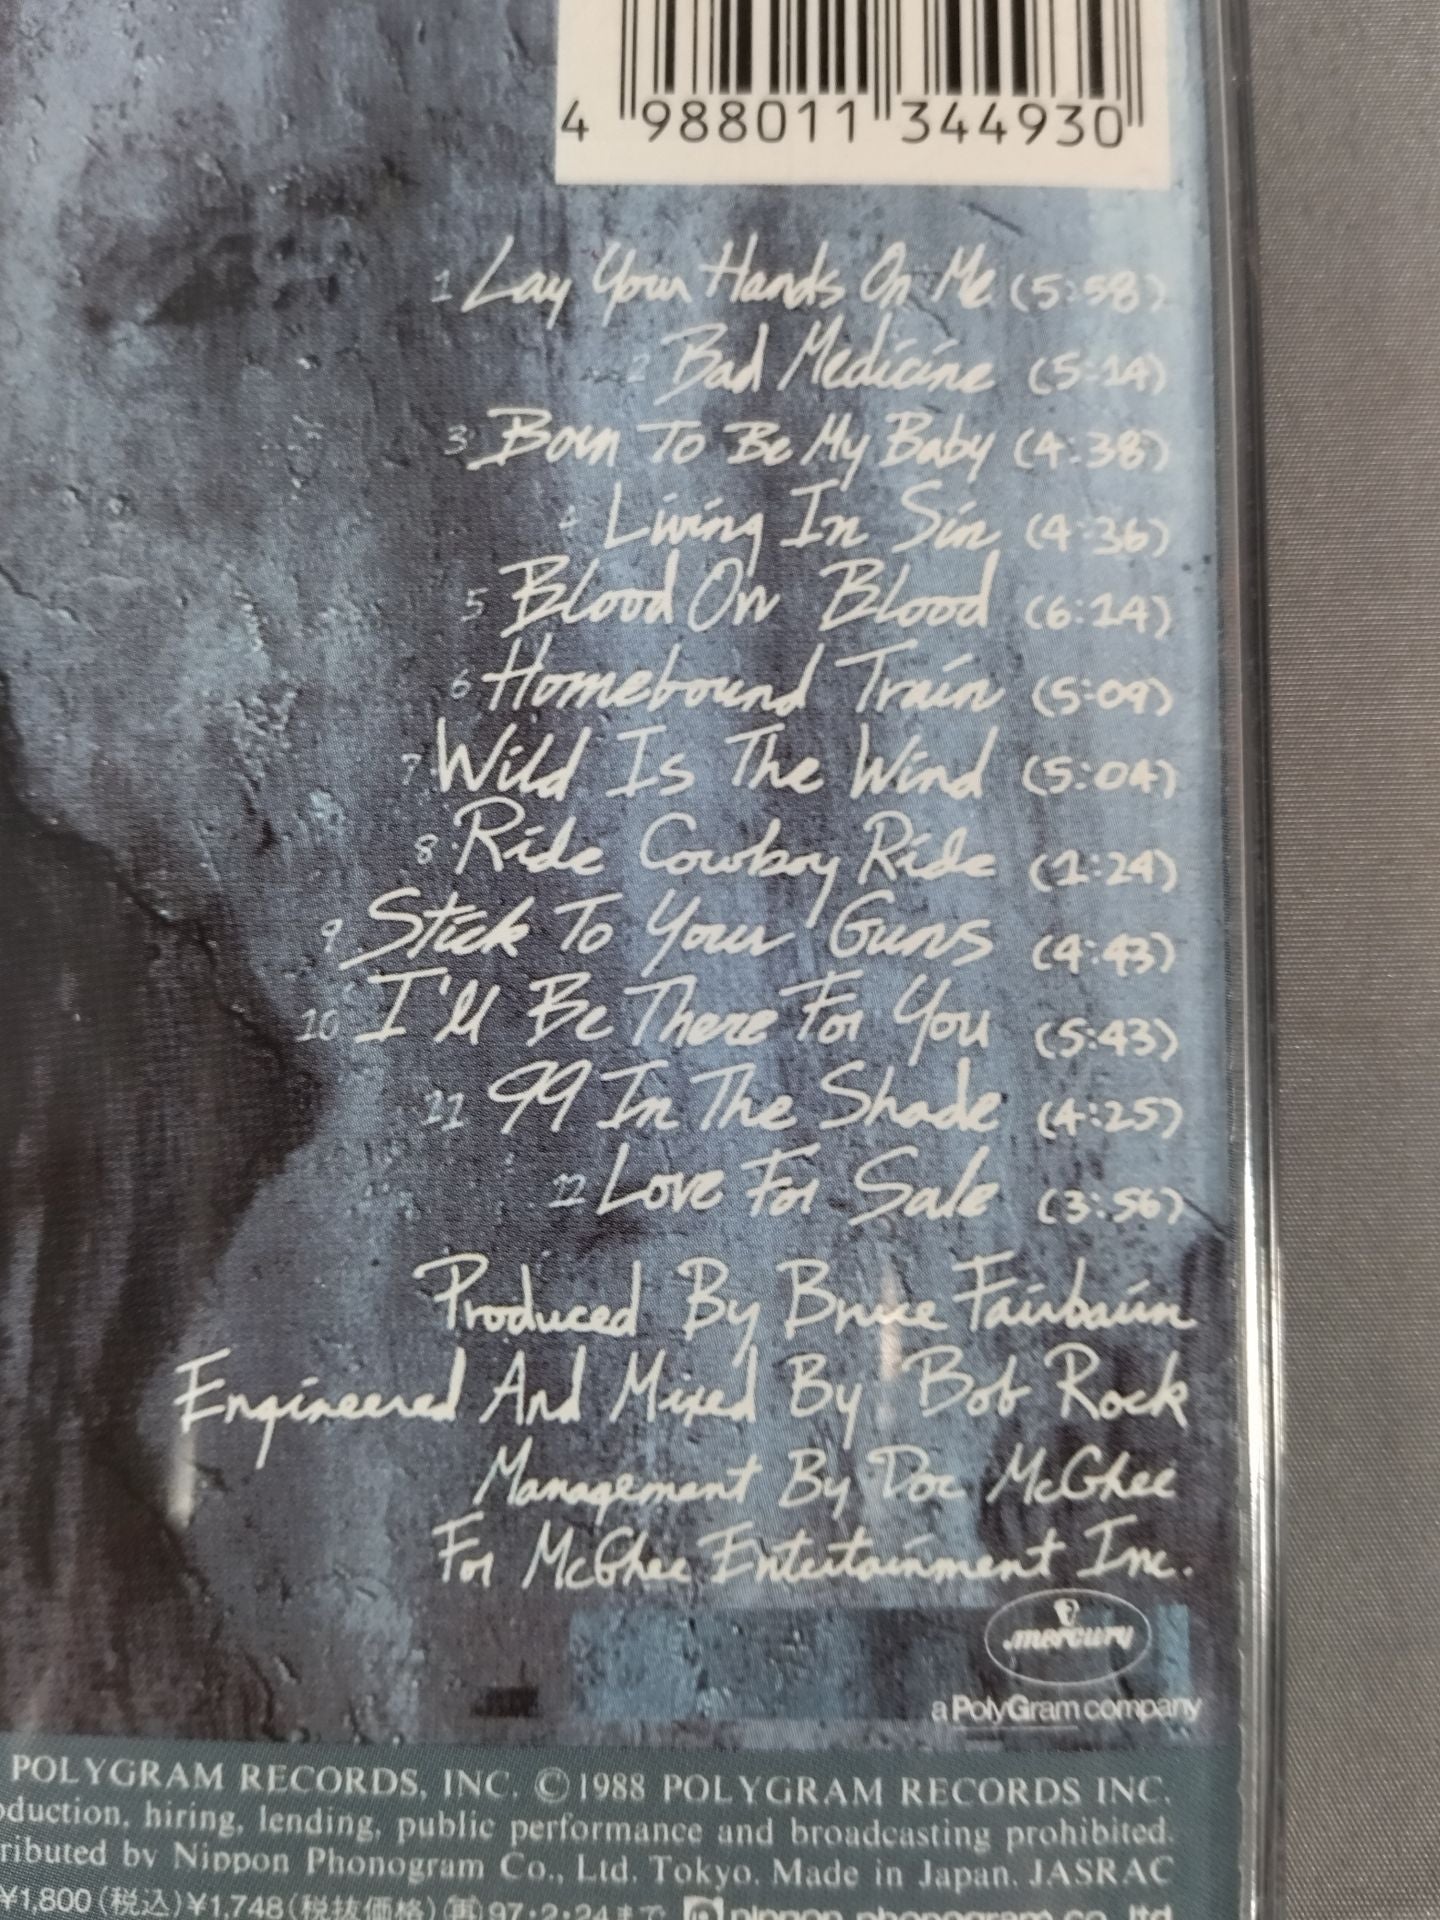 4 988011 344930
1 Lay Your Hands On Me (5:58)
2 Bad Medicine (5:14)
3 Born To Be My Baby (4:38)
4 Living In Sin (4:36)
5 Blood On Blood (6:14)
6 Homebound Train (5:09)
7 Wild Is The Wind (5:04)
8 Ride Cowboy Ride (1:24)
9 Stick To Your Guns (4:43)
10 I'll Be There For You (5:43)
11 99 In The Shade (4:25)
12 Love For Sale (3:56)
Produced By Bruce Fairbairn
Engineered And Mixed By Bob Rock
Management By Doc McGhee
For McGhee Entertainment Inc.
mercury
a PolyGram company
POLYGRAM RECORDS, INC. ©1988 POLYGRAM RECORDS INC.
oduction, hiring, lending, public performance and broadcasting prohibited.
ributed by Nippon Phonogram Co., Ltd. Tokyo. Made in Japan. JASRAC
¥1,800(税込)¥1,748(税抜価格) 再97・2・24まで nippon phonogram co., ltd.